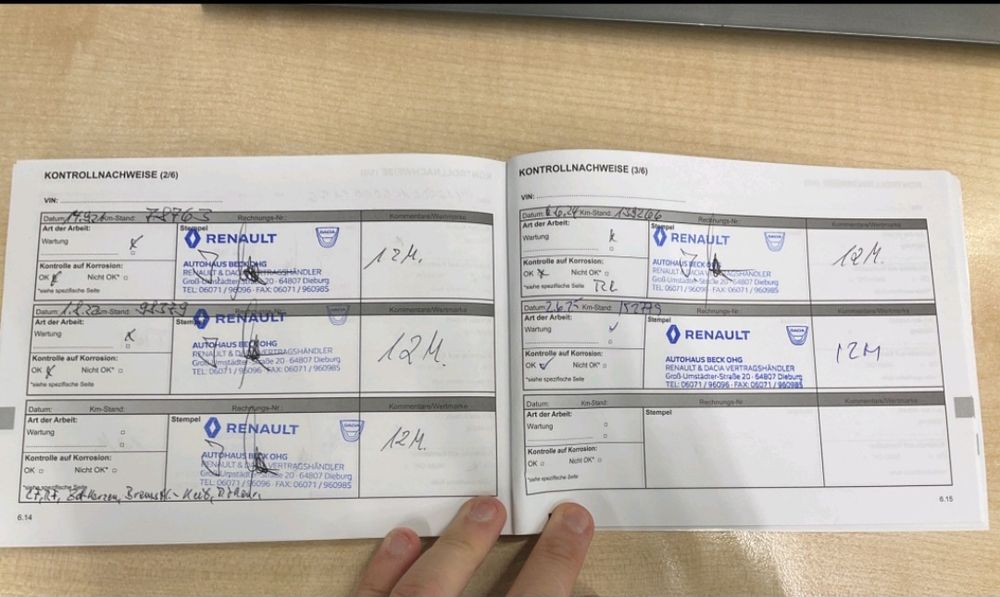 KONTROLLNACHWEISE (2/6)
VIN:
Datum: 14.9.21 Km-Stand: 78763 Rechnungs-Nr.: Kommentare/Wertmarke
Art der Arbeit: Stempel
Wartung
RENAULT DACIA
12 M.
Kontrolle auf Korrosion:
AUTOHAUS BECK OHG
RENAULT & DACIA VERTRAGSHÄNDLER
OK Nicht OK*
Groß-Umstädter-Straße 20 · 64807 Dieburg
*siehe spezifische Seite
TEL: 06071 / 96096 · FAX: 06071 / 960985
Datum: Km-Stand: Rechnungs-Nr.: Kommentare/Wertmarke
Art der Arbeit: Stempel
Wartung
RENAULT DACIA
12 M.
Kontrolle auf Korrosion:
AUTOHAUS BECK OHG
RENAULT & DACIA VERTRAGSHÄNDLER
OK Nicht OK*
Groß-Umstädter-Straße 20 · 64807 Dieburg
*siehe spezifische Seite
TEL: 06071 / 96096 · FAX: 06071 / 960985
Datum: Km-Stand: Rechnungs-Nr.: Kommentare/Wertmarke
Art der Arbeit: Stempel
Wartung
RENAULT DACIA
12 M.
Kontrolle auf Korrosion:
AUTOHAUS BECK OHG
RENAULT & DACIA VERTRAGSHÄNDLER
OK Nicht OK*
Straße 20 · 64807 Dieburg
*siehe spezifische Seite
TEL: 06071 / 96096 · FAX: 06071 / 960985
6.14
KONTROLLNACHWEISE (3/6)
VIN:
Datum: Km-Stand: Rechnungs-Nr.: Kommentare/Wertmarke
Art der Arbeit: Stempel
Wartung
RENAULT DACIA
12 M.
Kontrolle auf Korrosion:
AUTOHAUS BECK OHG
RENAULT & DACIA VERTRAGSHÄNDLER
OK Nicht OK*
Groß-Umstädter-Straße 20 · 64807 Dieburg
*siehe spezifische Seite
TEL: 06071 / 96096 · FAX: 06071 / 960985
Datum: Km-Stand: Rechnungs-Nr.: Kommentare/Wertmarke
Art der Arbeit: Stempel
Wartung
RENAULT DACIA
12 M
Kontrolle auf Korrosion:
AUTOHAUS BECK OHG
RENAULT & DACIA VERTRAGSHÄNDLER
OK Nicht OK*
Groß-Umstädter-Straße 20 · 64807 Dieburg
*siehe spezifische Seite
TEL: 06071 / 96096 · FAX: 06071 / 960985
Datum: Km-Stand: Rechnungs-Nr.: Kommentare/Wertmarke
Art der Arbeit: Stempel
Wartung
Kontrolle auf Korrosion:
OK Nicht OK*
*siehe spezifische Seite
6.15